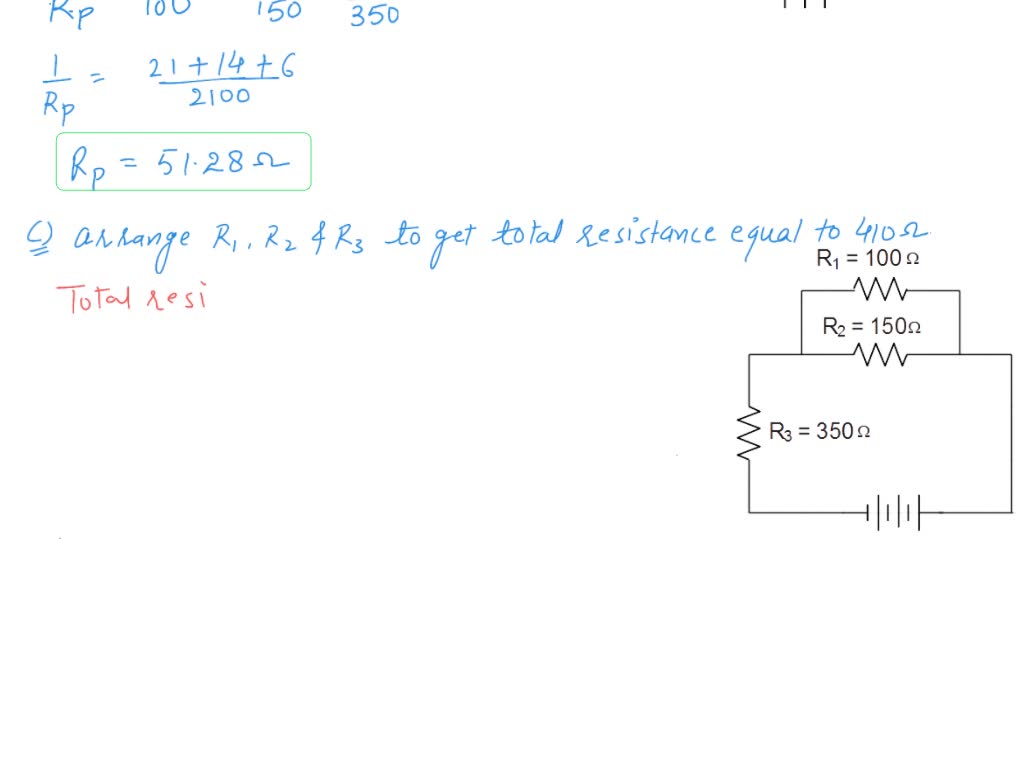 Rp 100 150 350
1/Rp = 21 + 14 + 6 / 2100
Rp = 51.28 Ω
C) arrange R1, R2 & R3 to get total resistance equal to 410Ω.
R1 = 100 Ω
Total resi
R2 = 150Ω
R3 = 350 Ω